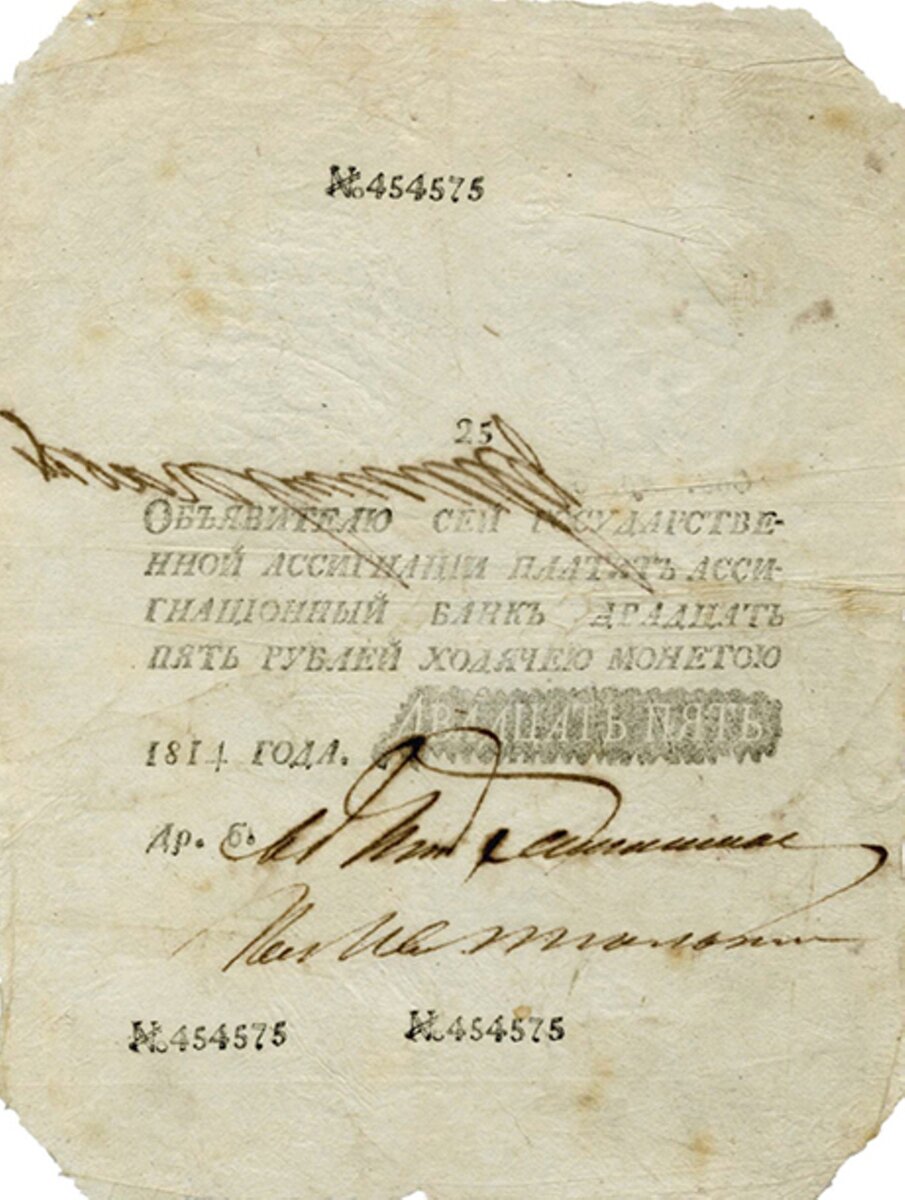 №454575
25
ОБЪЯВИТЕЛЮ СЕЙ ГОСУДАРСТВЕ-
ННОЙ АССИГНАЦІИ ПЛАТИТЪ АССИ-
ГНАЦІОННЫЙ БАНКЪ ДВАДЦАТЬ
ПЯТЬ РУБЛЕЙ ХОДЯЧЕЮ МОНЕТОЮ
ДВАДЦАТЬ ПЯТЬ
1814 ГОДА.
Др. б.
№454575 №454575